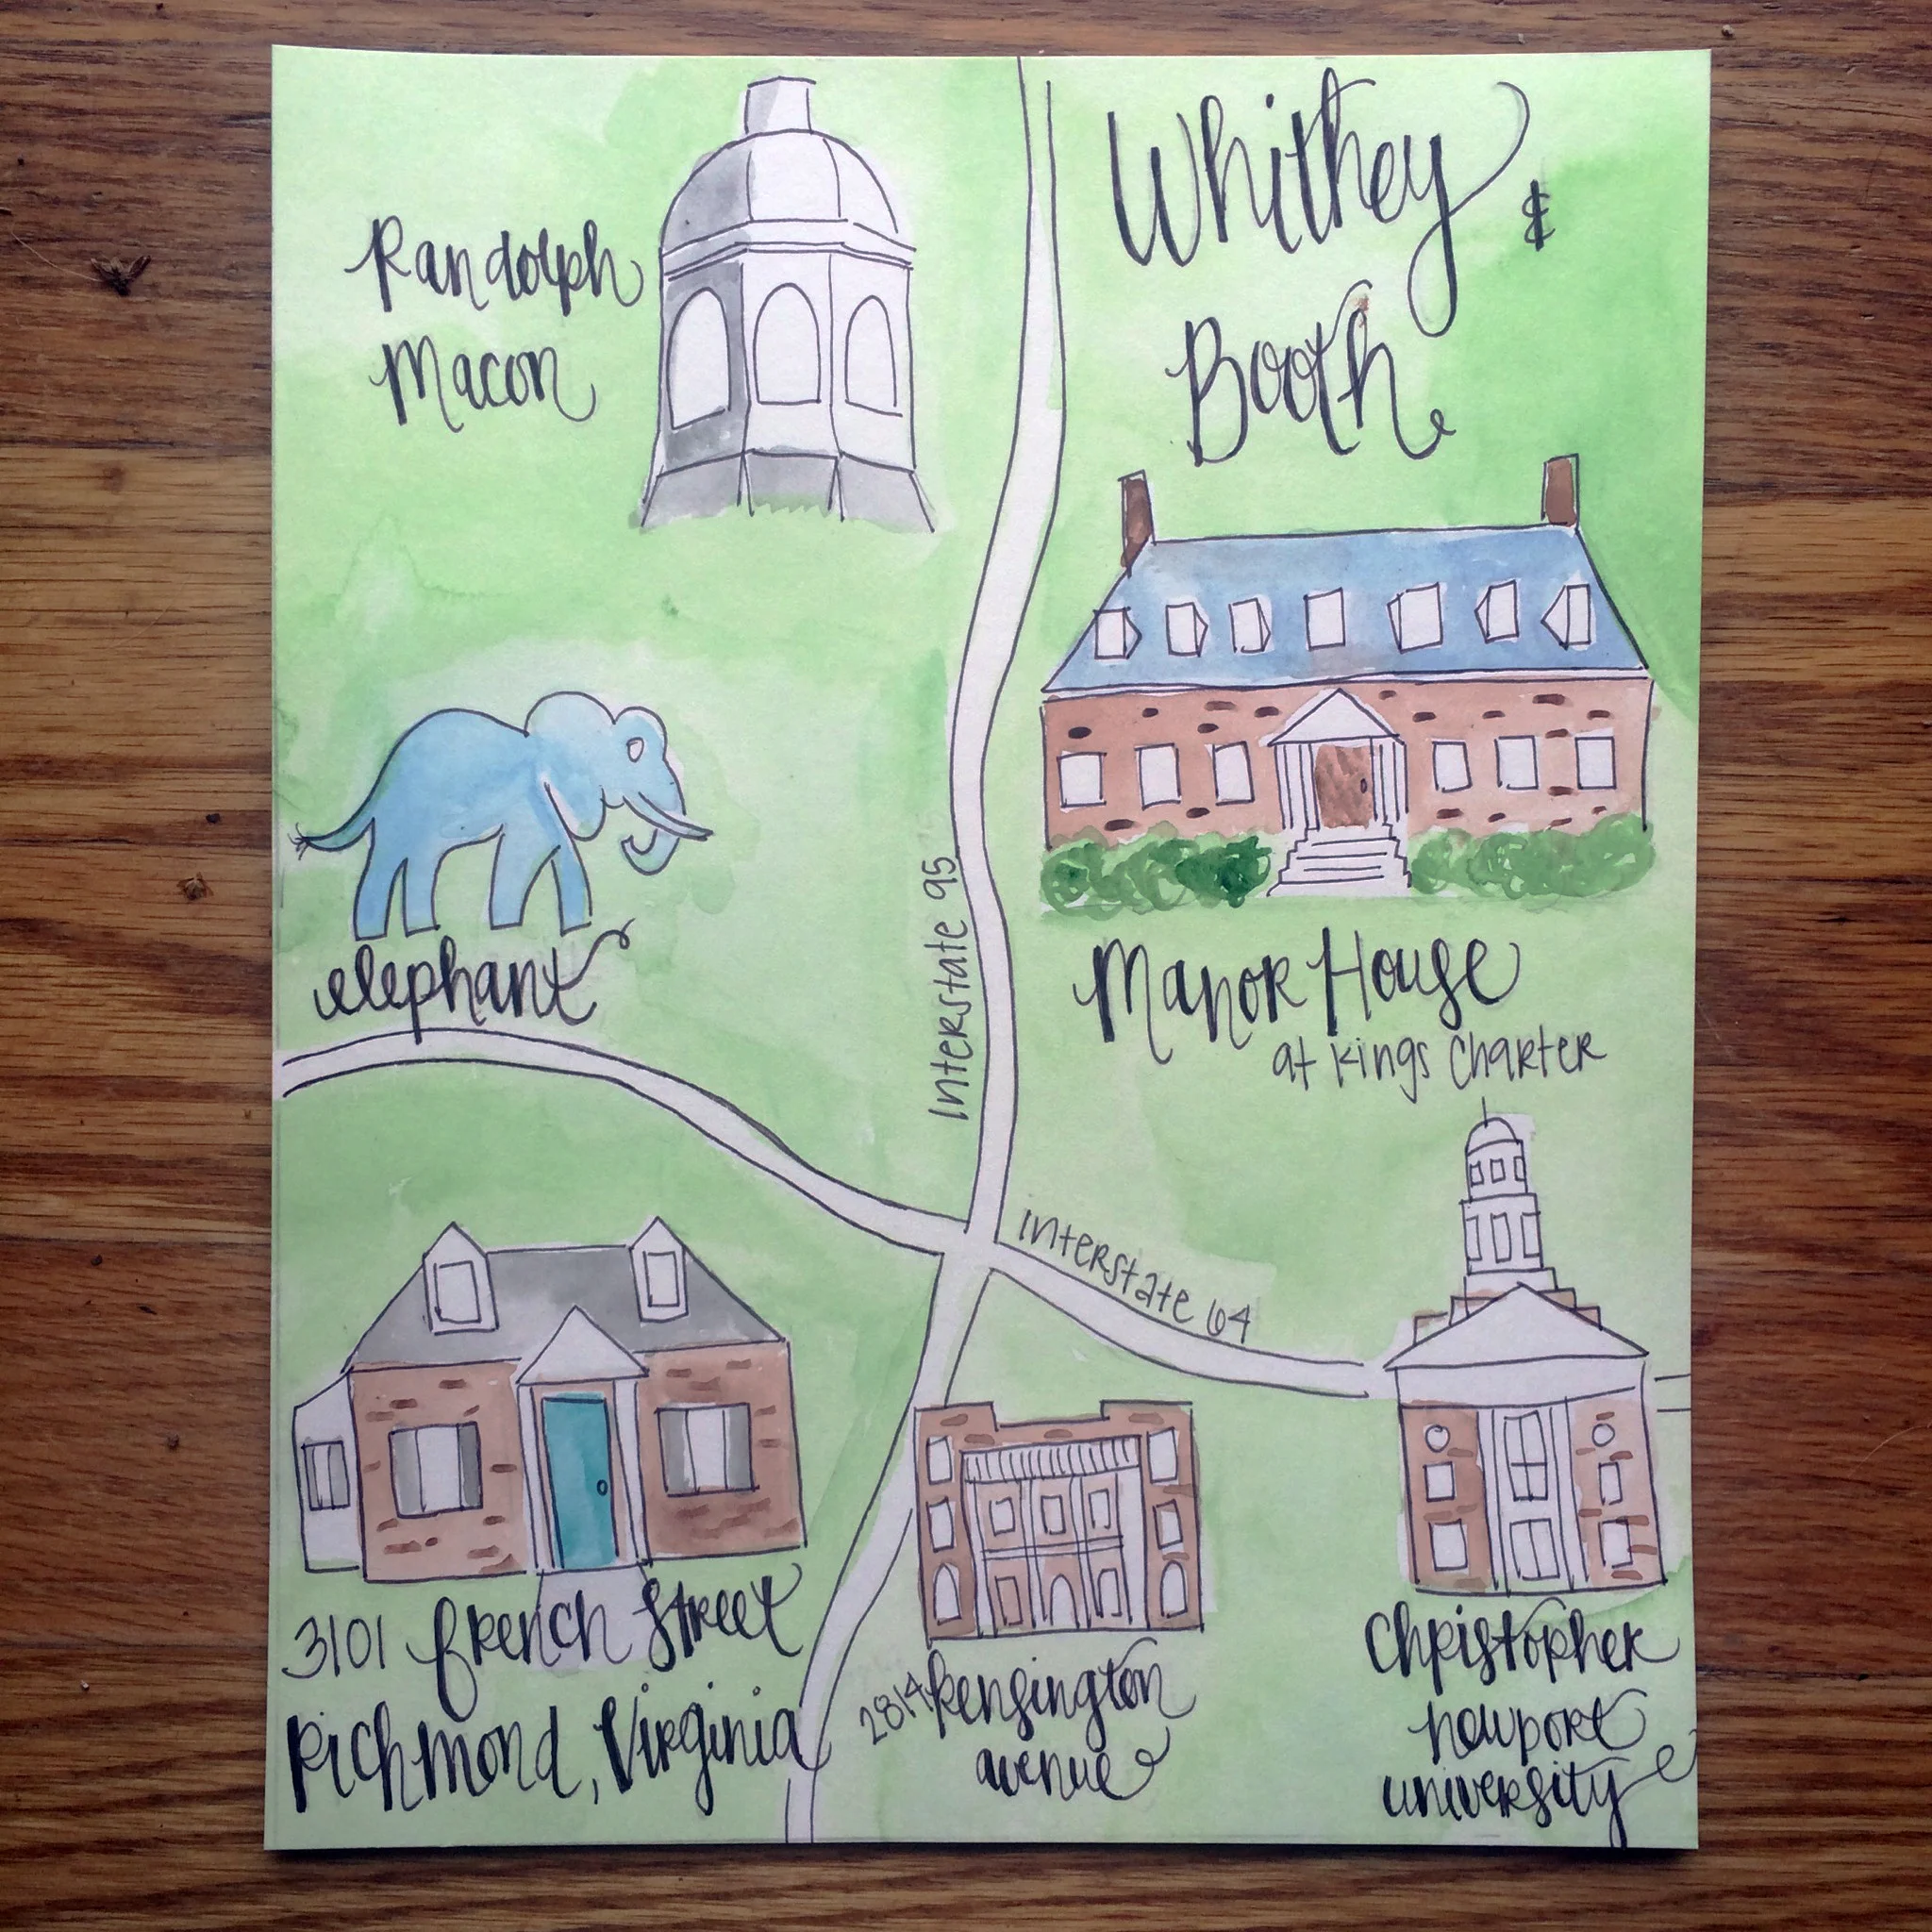 Whitney &
Booth
Randolph
Macon
elephant
Interstate 95
Manor House
at Kings Charter
Interstate 64
3101 French Street
Richmond, Virginia
2814 Kensington
avenue
Christopher
newport
university